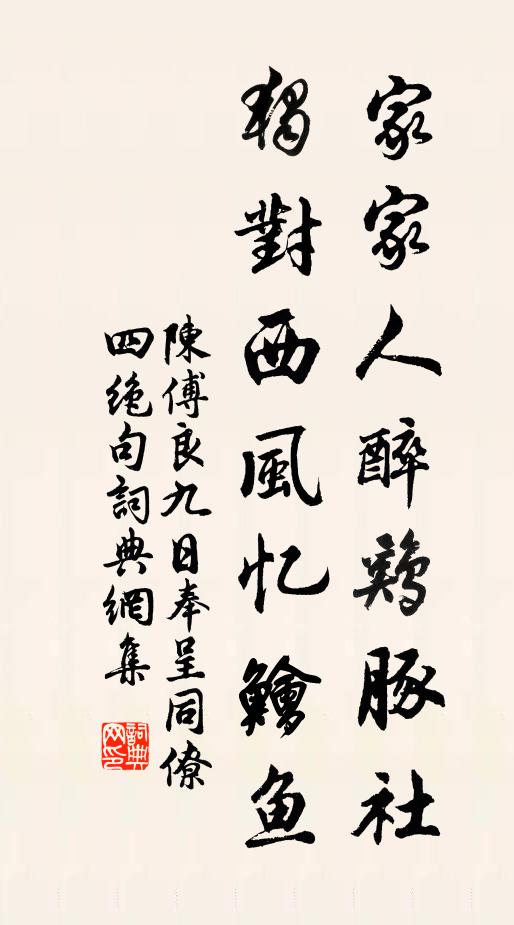 家家人醉鷄豚社
獨對西風忆鱠鱼
陳傅良九日奉呈同僚
四绝句詞典網集
詞典网印